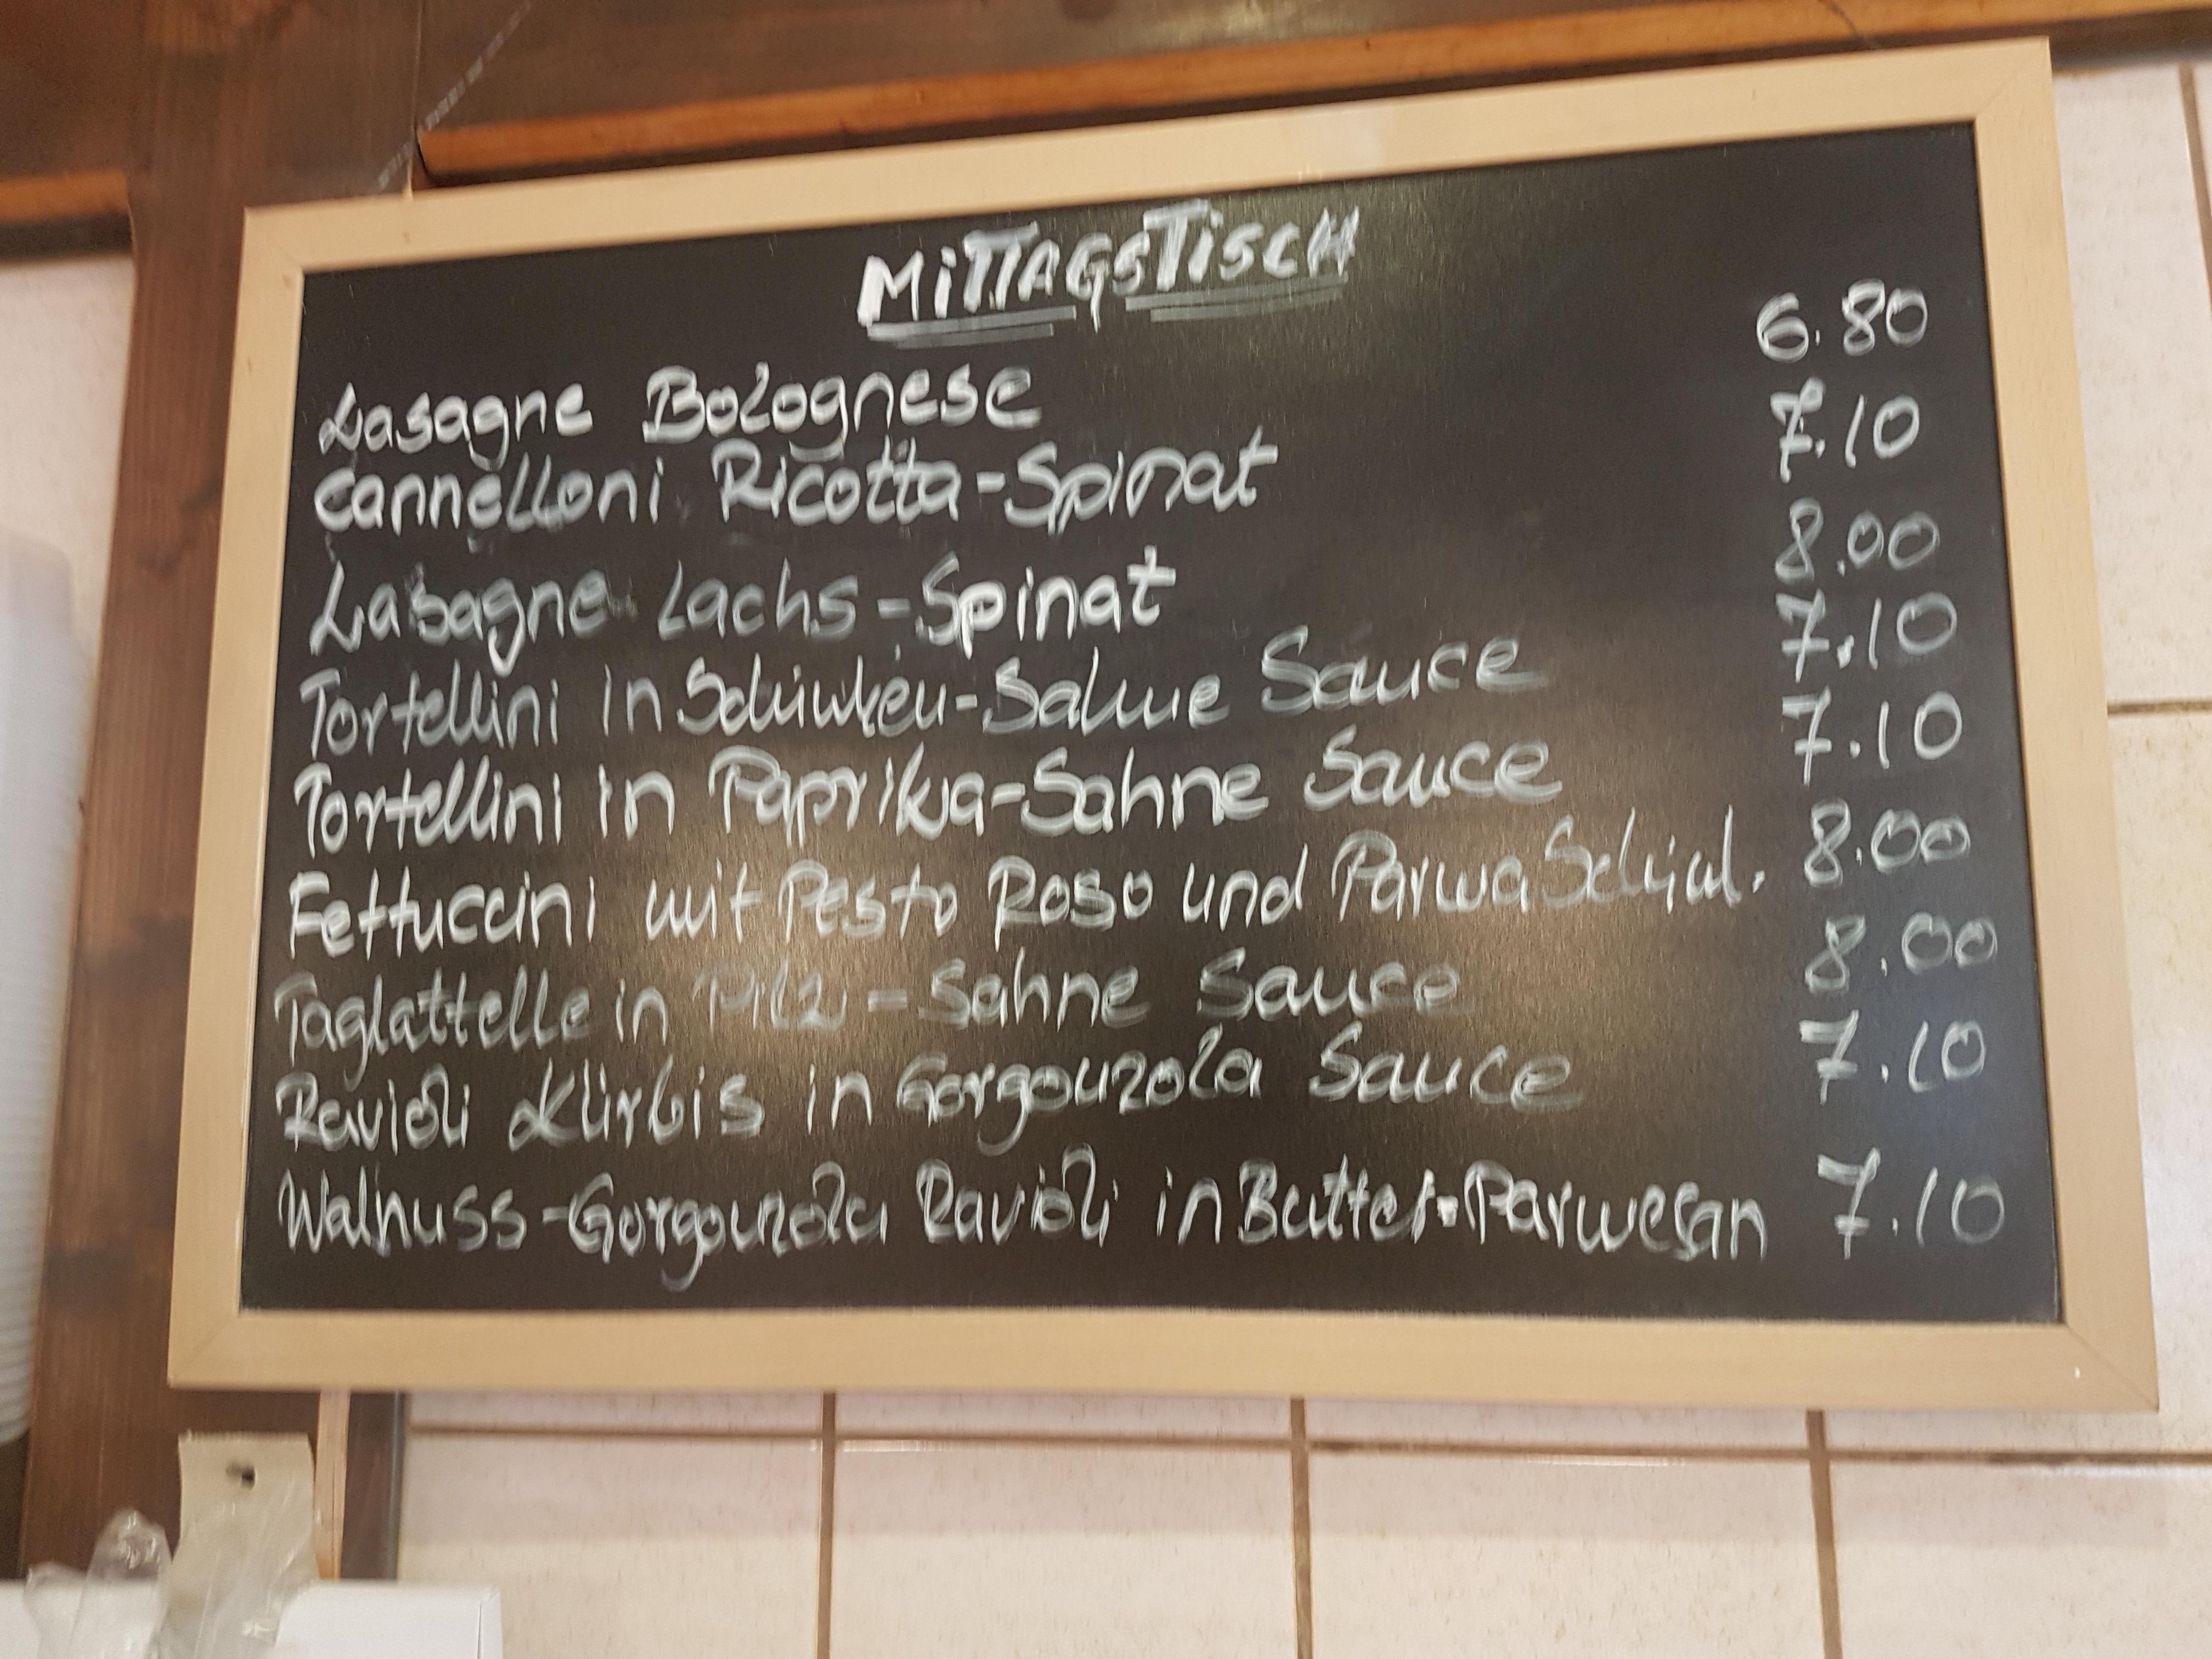 MiTTAGSTiSCH
Lasagne Bolognese 6.80
Cannelloni Ricotta-Spinat 7.10
Lasagne Lachs-Spinat 8.00
Tortellini in Schinken-Sahne Sauce 7.10
Tortellini in Paprika-Sahne Sauce 7.10
Fettuccini mit Pesto Roso und Parma Schink. 8.00
Taglattelle in Pilz-Sahne Sauce 8.00
Ravioli Kürbis in Gorgonzola Sauce 7.10
Walnuss-Gorgonzola Ravioli in Butter-Parmesan 7.10